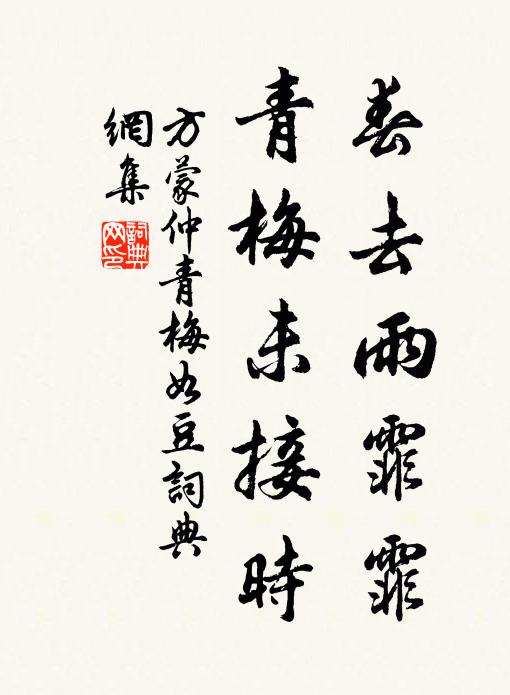 春去雨霏霏
青梅未接時
方蒙仲青梅如豆詞典
網集
詞典
网印